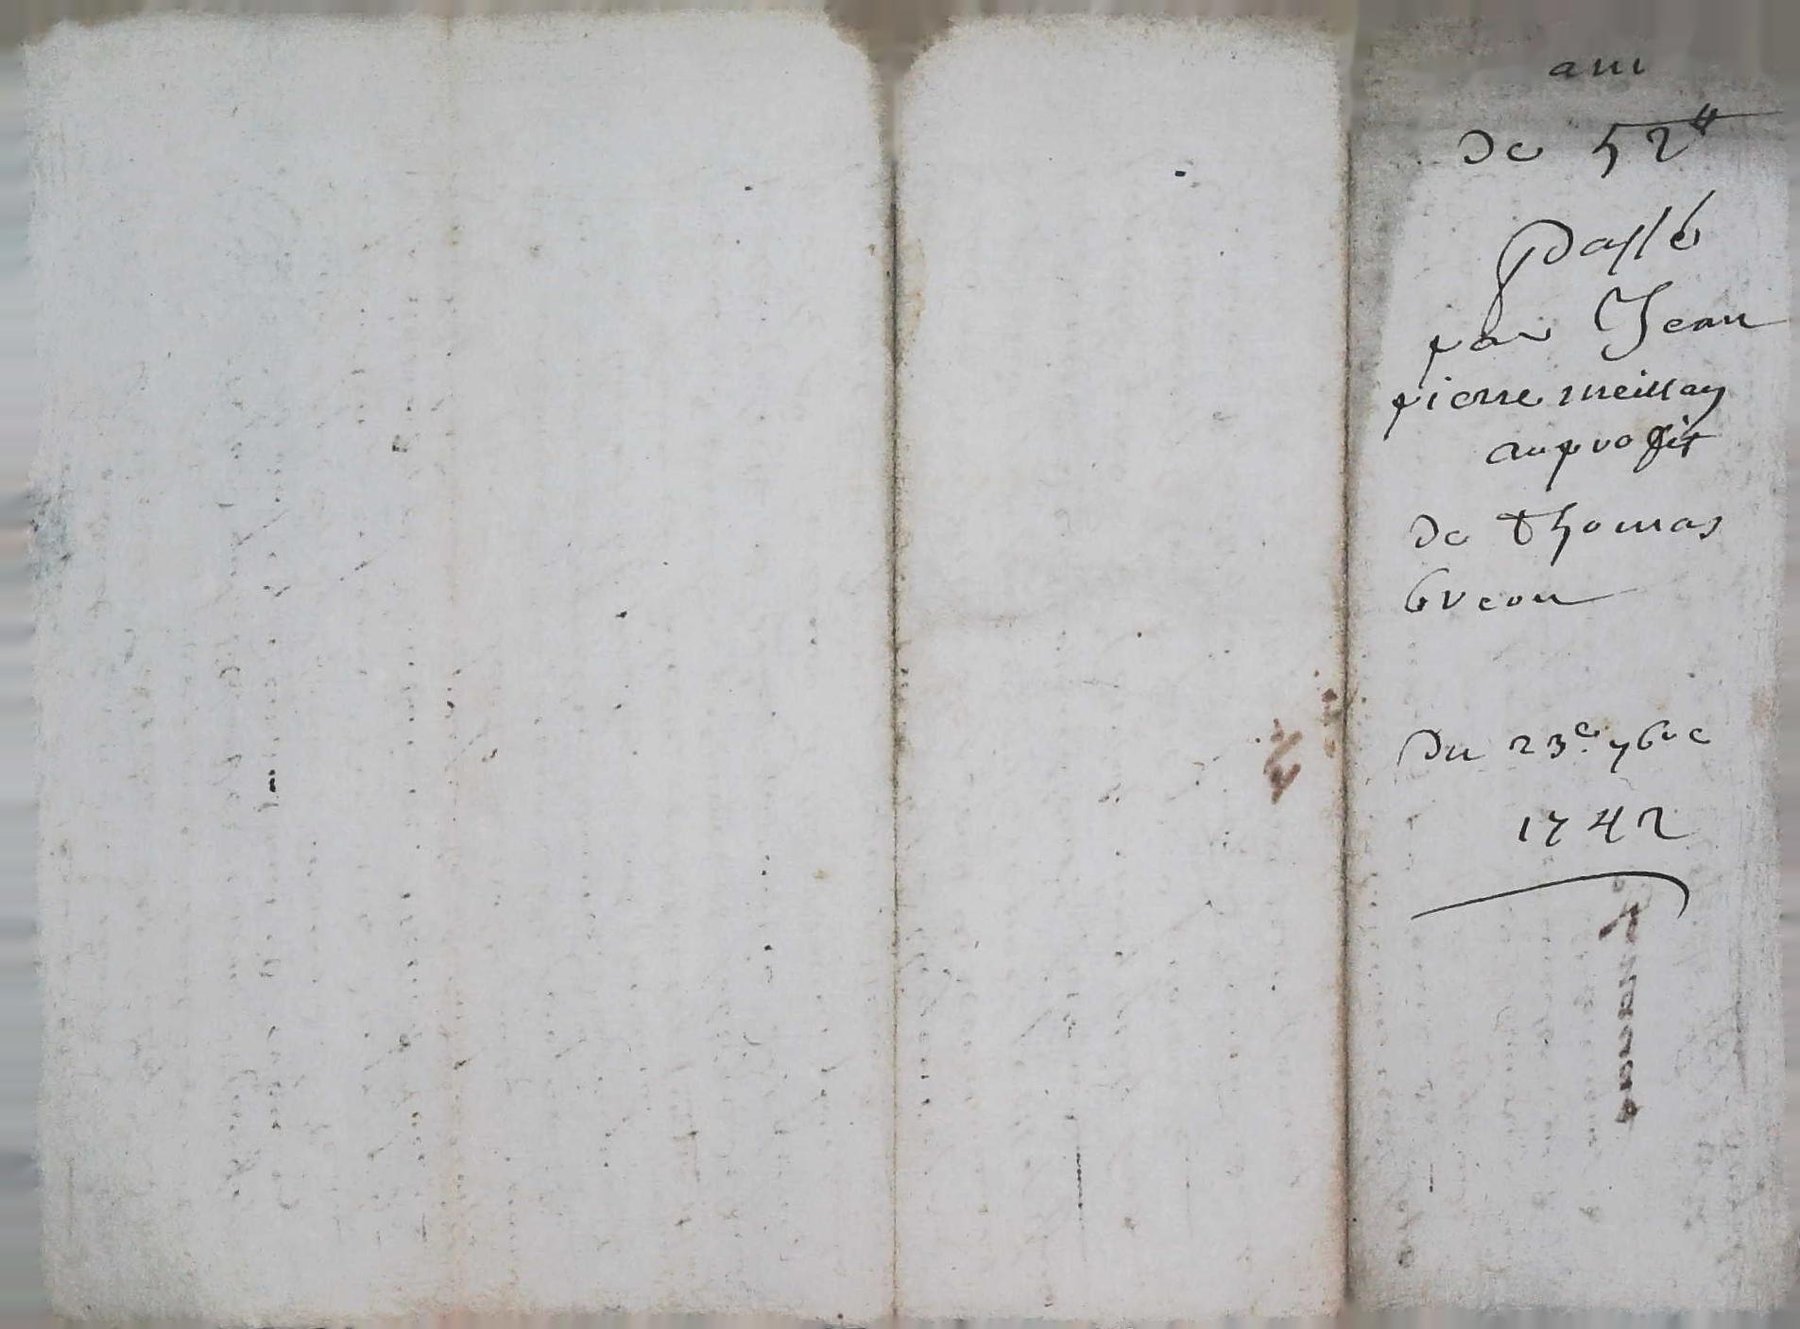 de 52ᵗᵗ
passé
par Jean
pierre meillan
au profit
de thomas
breou
Du 23ᵉ 7bre
1742